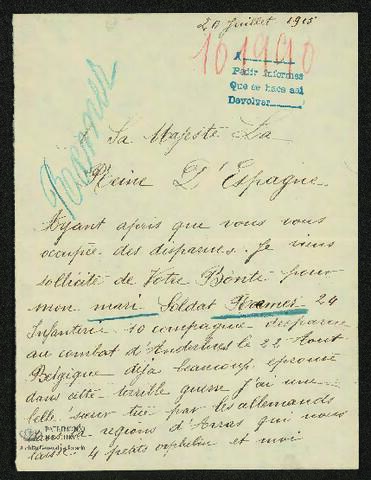 20 Juillet 1915
161990
A
Pedir informes
Que se haca así
Devolver
Sa Majesté La
Reine D'Espagne
Ayant apris que vous vous
occupée des disparues. Je viens
sollicité de Votre Bonté pour
mon mari Soldat 24
Infanterie 10 compagnie disparue
au combat d' le 22 Aout
Belgique déja beaucoup éprouvé
dans cette terrible guerre j'ai une
belle sœur tuée par les allemands
dans la regions d'Arras qui nous
laisse 4 petits orphelin et moi